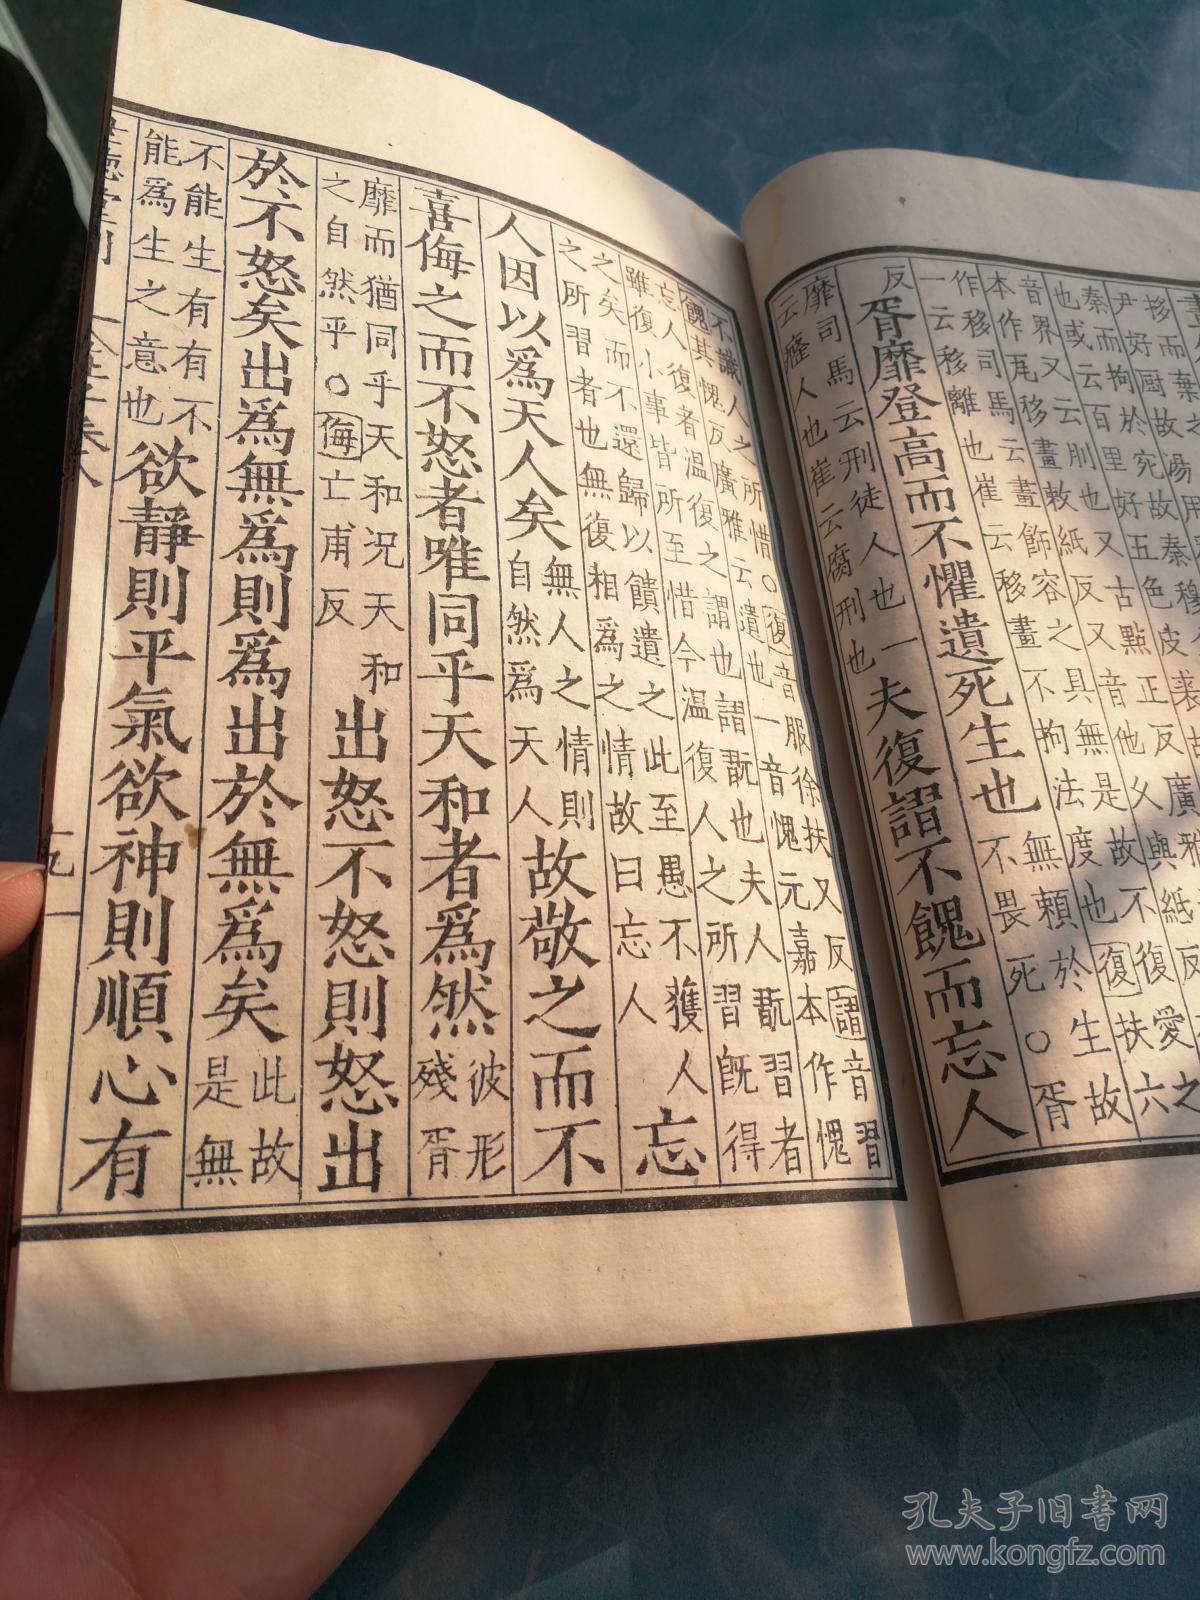 本作㐌移畫敕紙反又音他
作移司馬云畫飾容之具無是故不復愛之
一云移離也崔云移畫不拘法度也復扶六
反胥靡登高而不懼遺死生也無賴於生故
不畏死○胥
靡司馬云刑徒人也一
云癃人也崔云腐刑也
夫復謵不餽而忘人
不識人之所惜○復音服徐扶又反謵音習
餽其愧反廣雅云遺也一音愧元嘉本作愧
忘人復者溫復之謂也謵翫也夫人翫習者
雖復小事皆所至惜今溫復人之所習旣得
之矣而不還歸以饋遺之此至愚不獲人
之所習者也無復相爲之情故曰忘人
忘
人因以爲天人矣無人之情則
自然爲天人
故敬之而不
喜侮之而不怒者唯同乎天和者爲然彼形
殘胥
靡而猶同乎天和况天和
之自然乎○侮亡甫反
出怒不怒則怒出
於不怒矣出爲無爲則爲出於無爲矣此故
是無
不能生有有不
能爲生之意也
欲靜則平氣欲神則順心有
孔夫子旧书网
www.kongfz.com